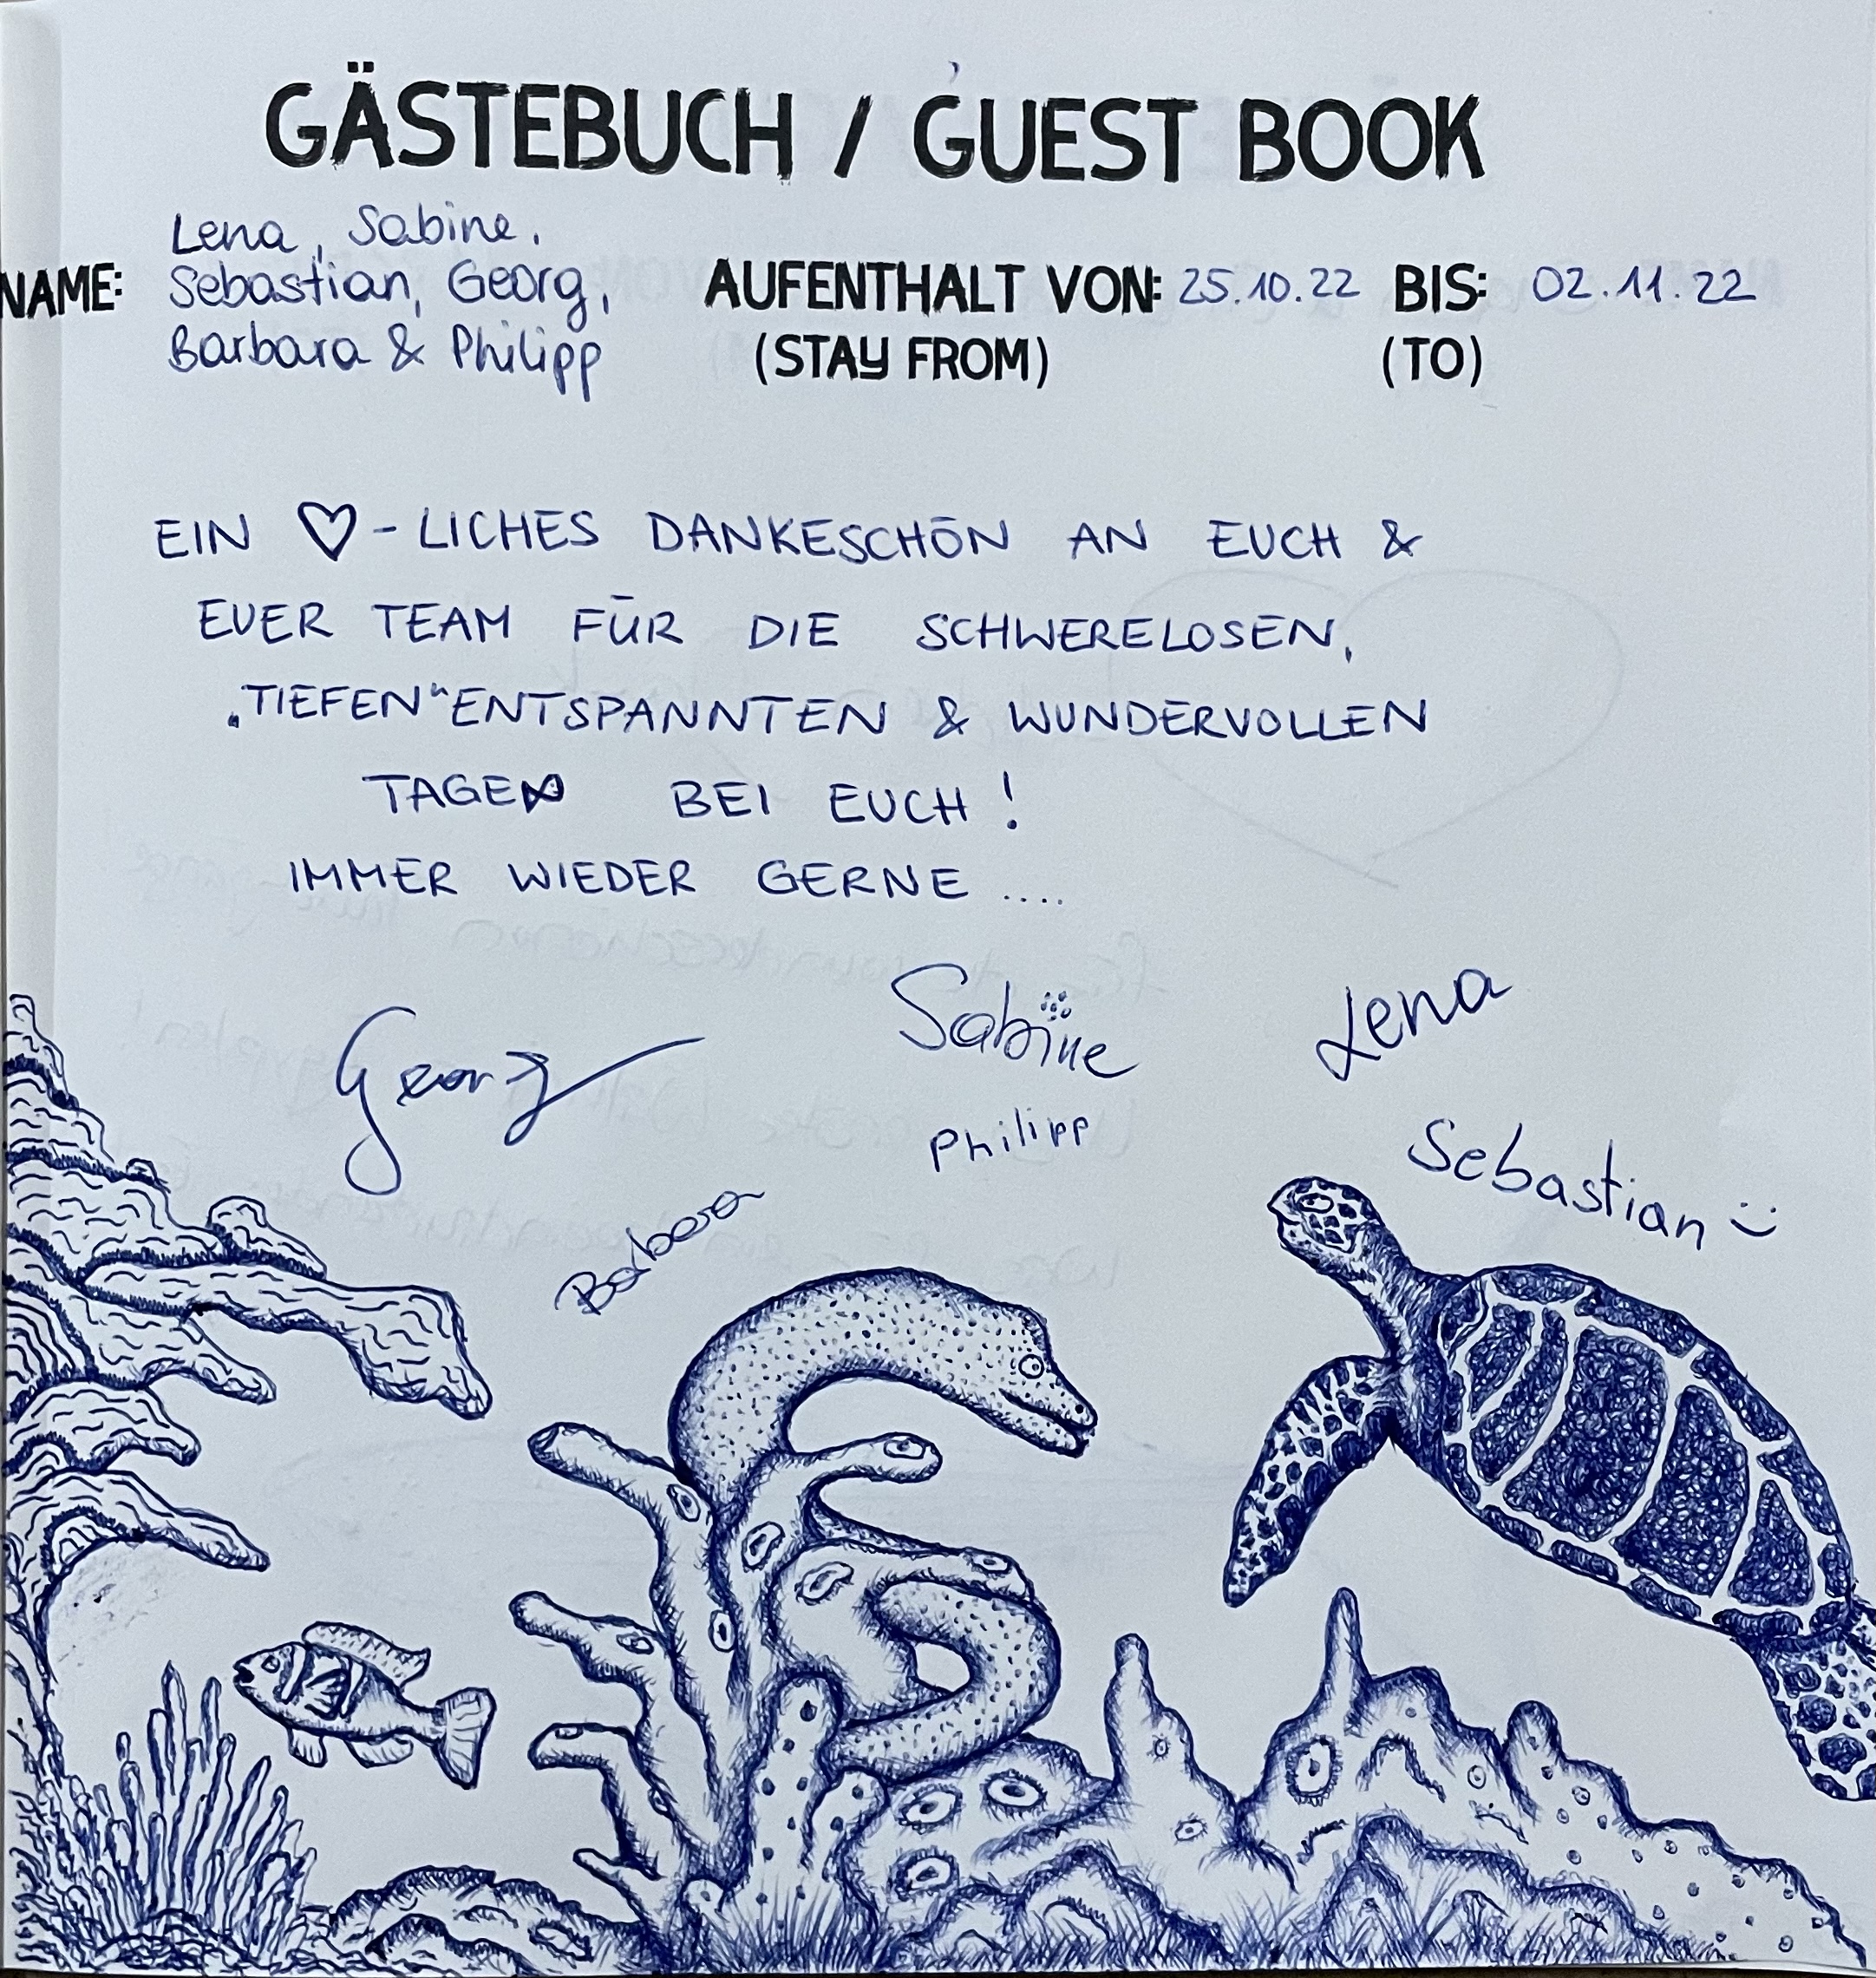 GÄSTEBUCH / GUEST BOOK
Lena, Sabine,
NAME: Sebastian, Georg, AUFENTHALT VON: 25.10.22 BIS: 02.11.22
Barbara & Philipp (STAY FROM) (TO)
EIN ♡-LICHES DANKESCHÖN AN EUCH &
EUER TEAM FÜR DIE SCHWERELOSEN,
„TIEFEN“ENTSPANNTEN & WUNDERVOLLEN
TAGE BEI EUCH!
IMMER WIEDER GERNE ....
Georg Sabine Lena
Philipp
Sebastian :)
Barbara